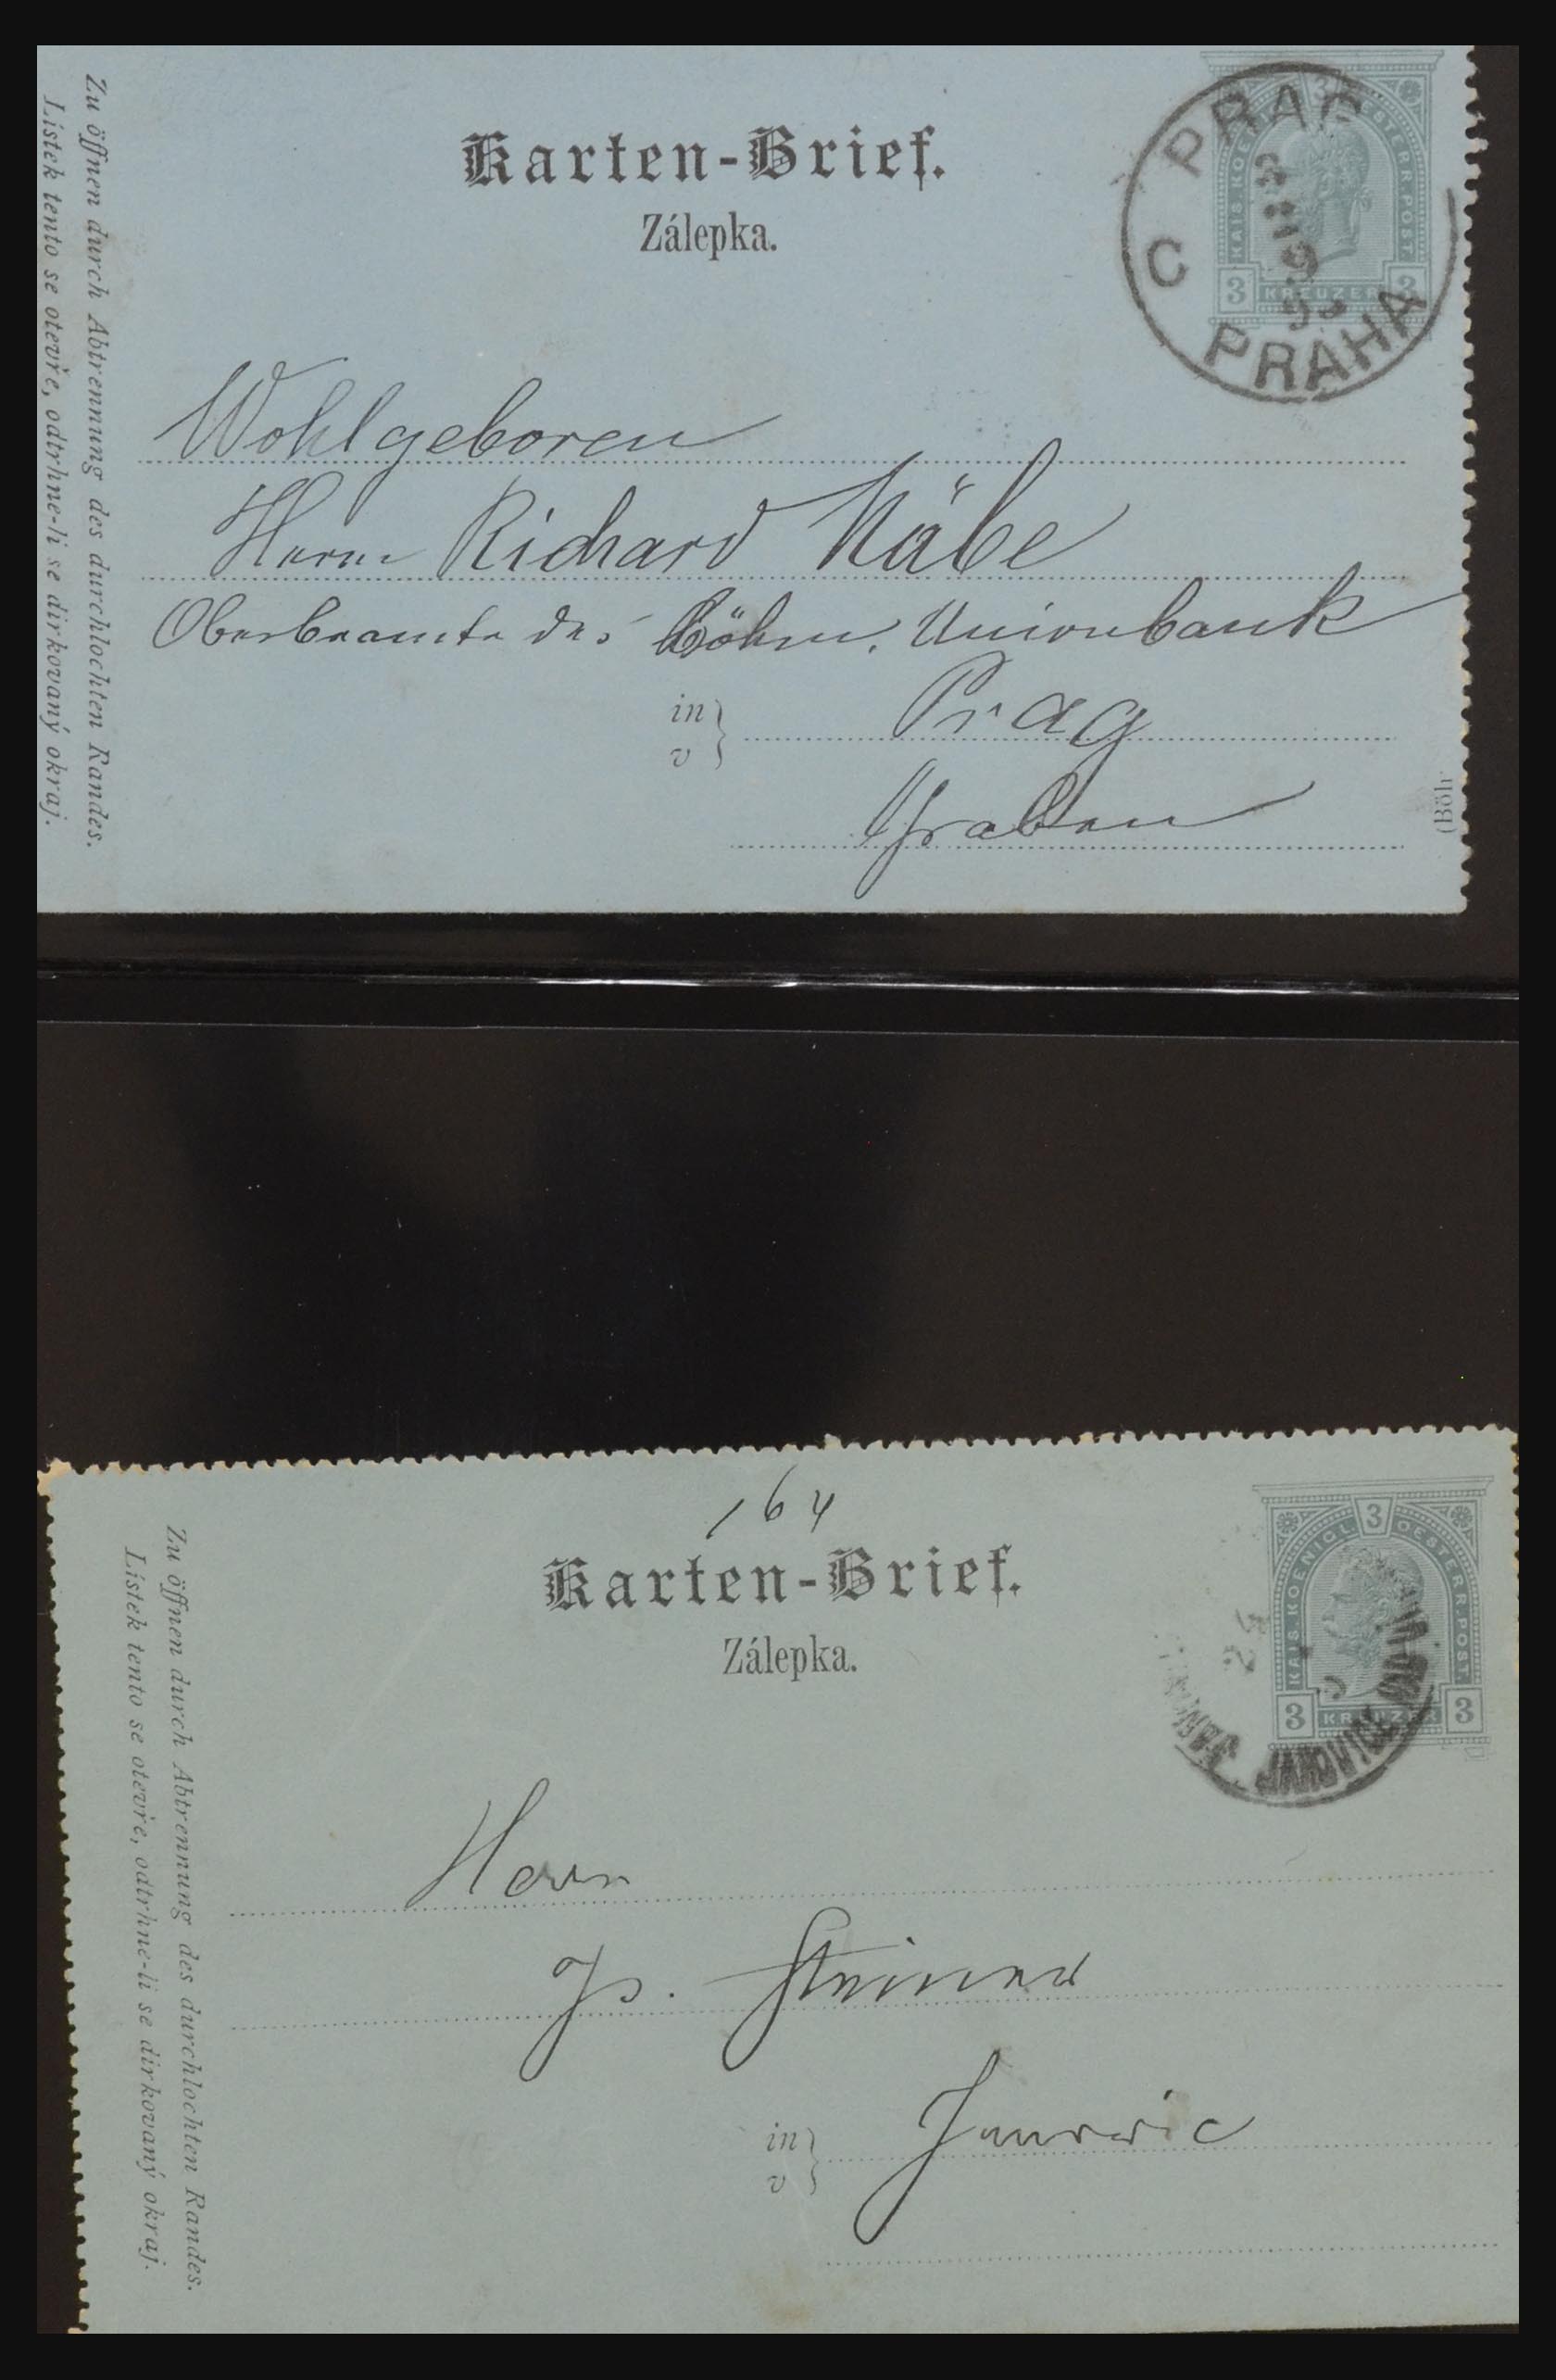 Karten-Brief.
Zálepka.
PRAG
C
PRAHA
KREUZER
3
Zu öffnen durch Abtrennung des durchlochten Randes.
Lístek tento se otevře, odtrhne-li se dirkovaný okraj.
Wohlgeboren
Herrn Richard Näbe
Oberbeamte der Böhm. Unionbank
in
v
Prag
Graben
(Böh
164
Karten-Brief.
Zálepka.
3
KAIS. KOENIGL. OESTERR. POST.
3 KREUZER 3
Zu öffnen durch Abtrennung des durchlochten Randes.
Lístek tento se otevře, odtrhne-li se dirkovaný okraj.
Herrn
Steiner
in
v